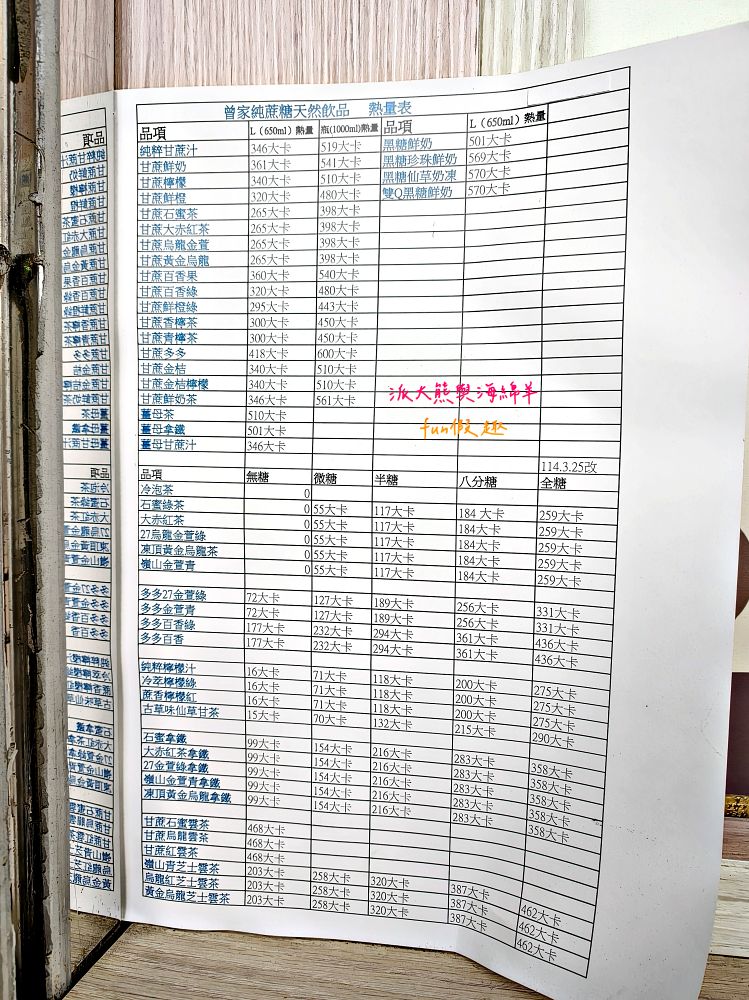 曾家純蔗糖天然飲品 熱量表
品項 L（650ml）熱量 瓶(1000ml)熱量 品項 L（650ml）熱量
純粹甘蔗汁 346大卡 519大卡 黑糖鮮奶 501大卡
甘蔗鮮奶 361大卡 541大卡 黑糖珍珠鮮奶 569大卡
甘蔗檸檬 340大卡 510大卡 黑糖仙草奶凍 570大卡
甘蔗鮮橙 320大卡 480大卡 雙Q黑糖鮮奶 570大卡
甘蔗石蜜茶 265大卡 398大卡
甘蔗大赤紅茶 265大卡 398大卡
甘蔗烏龍金萱 265大卡 398大卡
甘蔗黃金烏龍 265大卡 398大卡
甘蔗百香果 360大卡 540大卡
甘蔗百香綠 320大卡 480大卡
甘蔗鮮橙綠 295大卡 443大卡
甘蔗香檸茶 300大卡 450大卡
甘蔗青檸茶 300大卡 450大卡
甘蔗多多 418大卡 600大卡
甘蔗金桔 340大卡 510大卡
甘蔗金桔檸檬 340大卡 510大卡
甘蔗鮮奶茶 346大卡 561大卡
薑母茶 510大卡
薑母拿鐵 501大卡
薑母甘蔗汁 346大卡
派大熊與海綿羊
fun假趣
114.3.25改
品項 無糖 微糖 半糖 八分糖 全糖
冷泡茶 0
石蜜綠茶 0 55大卡 117大卡 184 大卡 259大卡
大赤紅茶 0 55大卡 117大卡 184大卡 259大卡
27烏龍金萱綠 0 55大卡 117大卡 184大卡 259大卡
凍頂黃金烏龍茶 0 55大卡 117大卡 184大卡 259大卡
嶺山金萱青 0 55大卡 117大卡 184大卡 259大卡
多多27金萱綠 72大卡 127大卡 189大卡 256大卡 331大卡
多多金萱青 72大卡 127大卡 189大卡 256大卡 331大卡
多多百香綠 177大卡 232大卡 294大卡 361大卡 436大卡
多多百香 177大卡 232大卡 294大卡 361大卡 436大卡
純粹檸檬汁 16大卡 71大卡 118大卡 200大卡 275大卡
冷萃檸檬綠 16大卡 71大卡 118大卡 200大卡 275大卡
蔗香檸檬紅 16大卡 71大卡 118大卡 200大卡 275大卡
古草味仙草甘茶 15大卡 70大卡 132大卡 215大卡 290大卡
石蜜拿鐵 99大卡 154大卡 216大卡 283大卡 358大卡
大赤紅茶拿鐵 99大卡 154大卡 216大卡 283大卡 358大卡
27金萱綠拿鐵 99大卡 154大卡 216大卡 283大卡 358大卡
嶺山金萱青拿鐵 99大卡 154大卡 216大卡 283大卡 358大卡
凍頂黃金烏龍拿鐵 99大卡 154大卡 216大卡 283大卡 358大卡
甘蔗石蜜雲茶 468大卡
甘蔗烏龍雲茶 468大卡
甘蔗紅雲茶 468大卡
嶺山青芝士雲茶 203大卡 258大卡 320大卡 387大卡 462大卡
烏龍紅芝士雲茶 203大卡 258大卡 320大卡 387大卡 462大卡
黃金烏龍芝士雲茶 203大卡 258大卡 320大卡 387大卡 462大卡